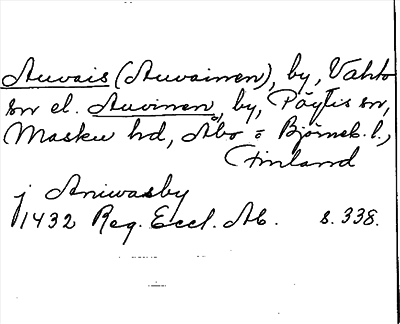 Auvais (Auvainen), by, Vahto
sn el. Auvinen, by, Pöytis sn,
Masku hd, Åbo o Björneb. l.,
Finland
j Aniwasby
1432 Reg. Eccl. Ab. s. 338.